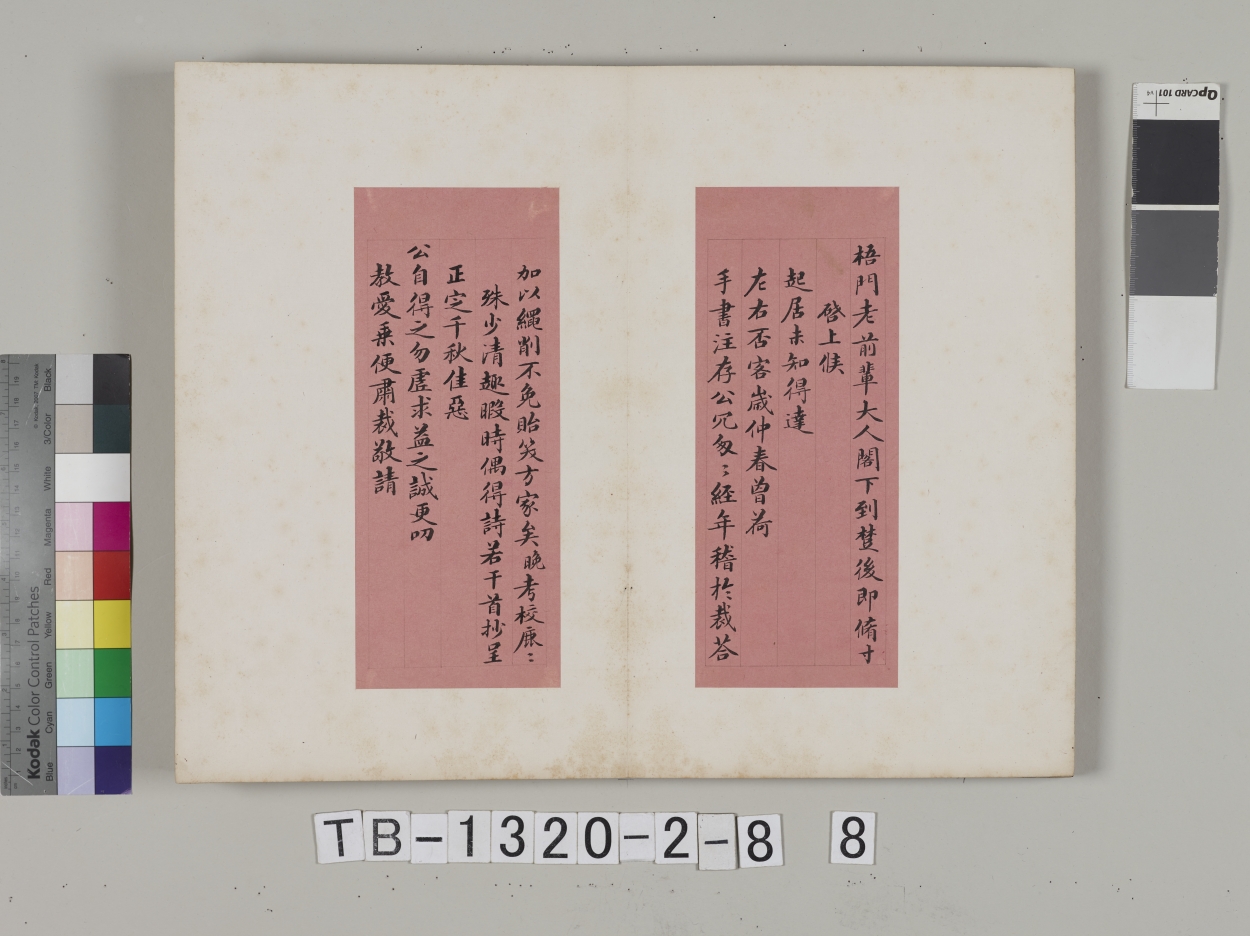 梧門老前輩大人閣下到楚後即脩寸
啓上候
起居未知得達
左右否客歲仲春曾荷
手書注存公冗匆〻經年稽於裁荅
加以繩削不免貽笑方家矣晚考校鹿〻
殊少清趣暇時偶得詩若干首抄呈
正定千秋佳惡
公自得之勿虛求益之誠更叨
教愛乗便肅裁敬請
QpCARD 101
v4
Kodak Color Control Patches
Blue
Cyan
Green
Yellow
Red
Magenta
White
3/Color
Black
TB-1320-2-8 8